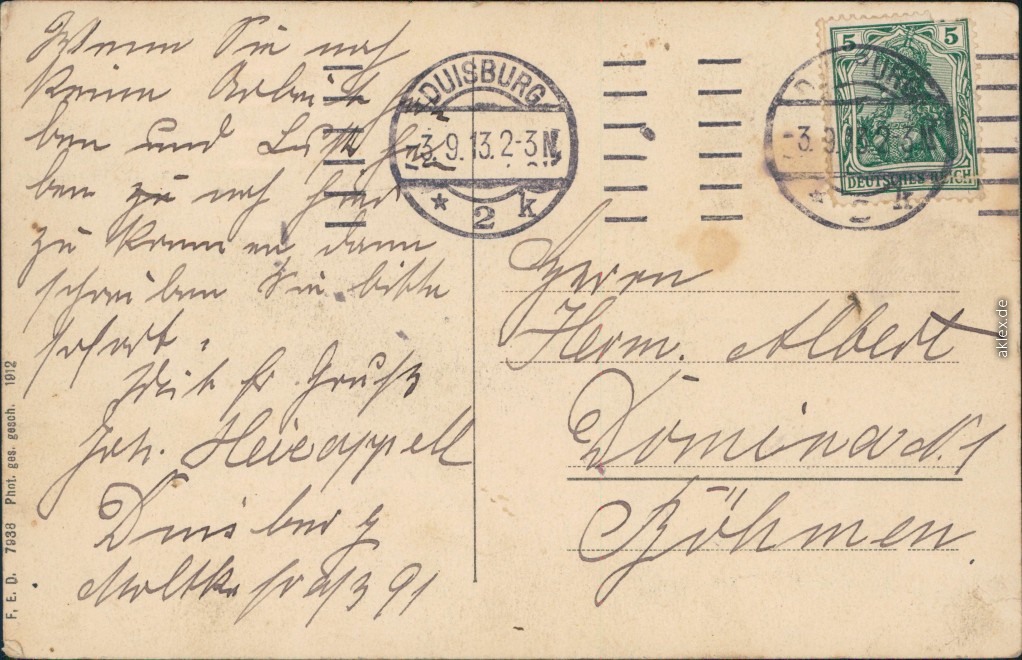 Wenn Sie noch
keine Arbeit ha
ben und Lust ha
ben zu noch hier
zu kommen dann
schreiben Sie bitte
sofort.
Mit fr. Gruß
Joh. Heizappell
Duisburg
Moltkestraße 91
DUISBURG
-3.9.13.2-3N
* 2 k
5 5
DEUTSCHES REICH
Herrn
Herm. Albert
Dominad. 1
Böhmen.
F. E. D. 7938 Phot. ges. gesch. 1912
aklex.de